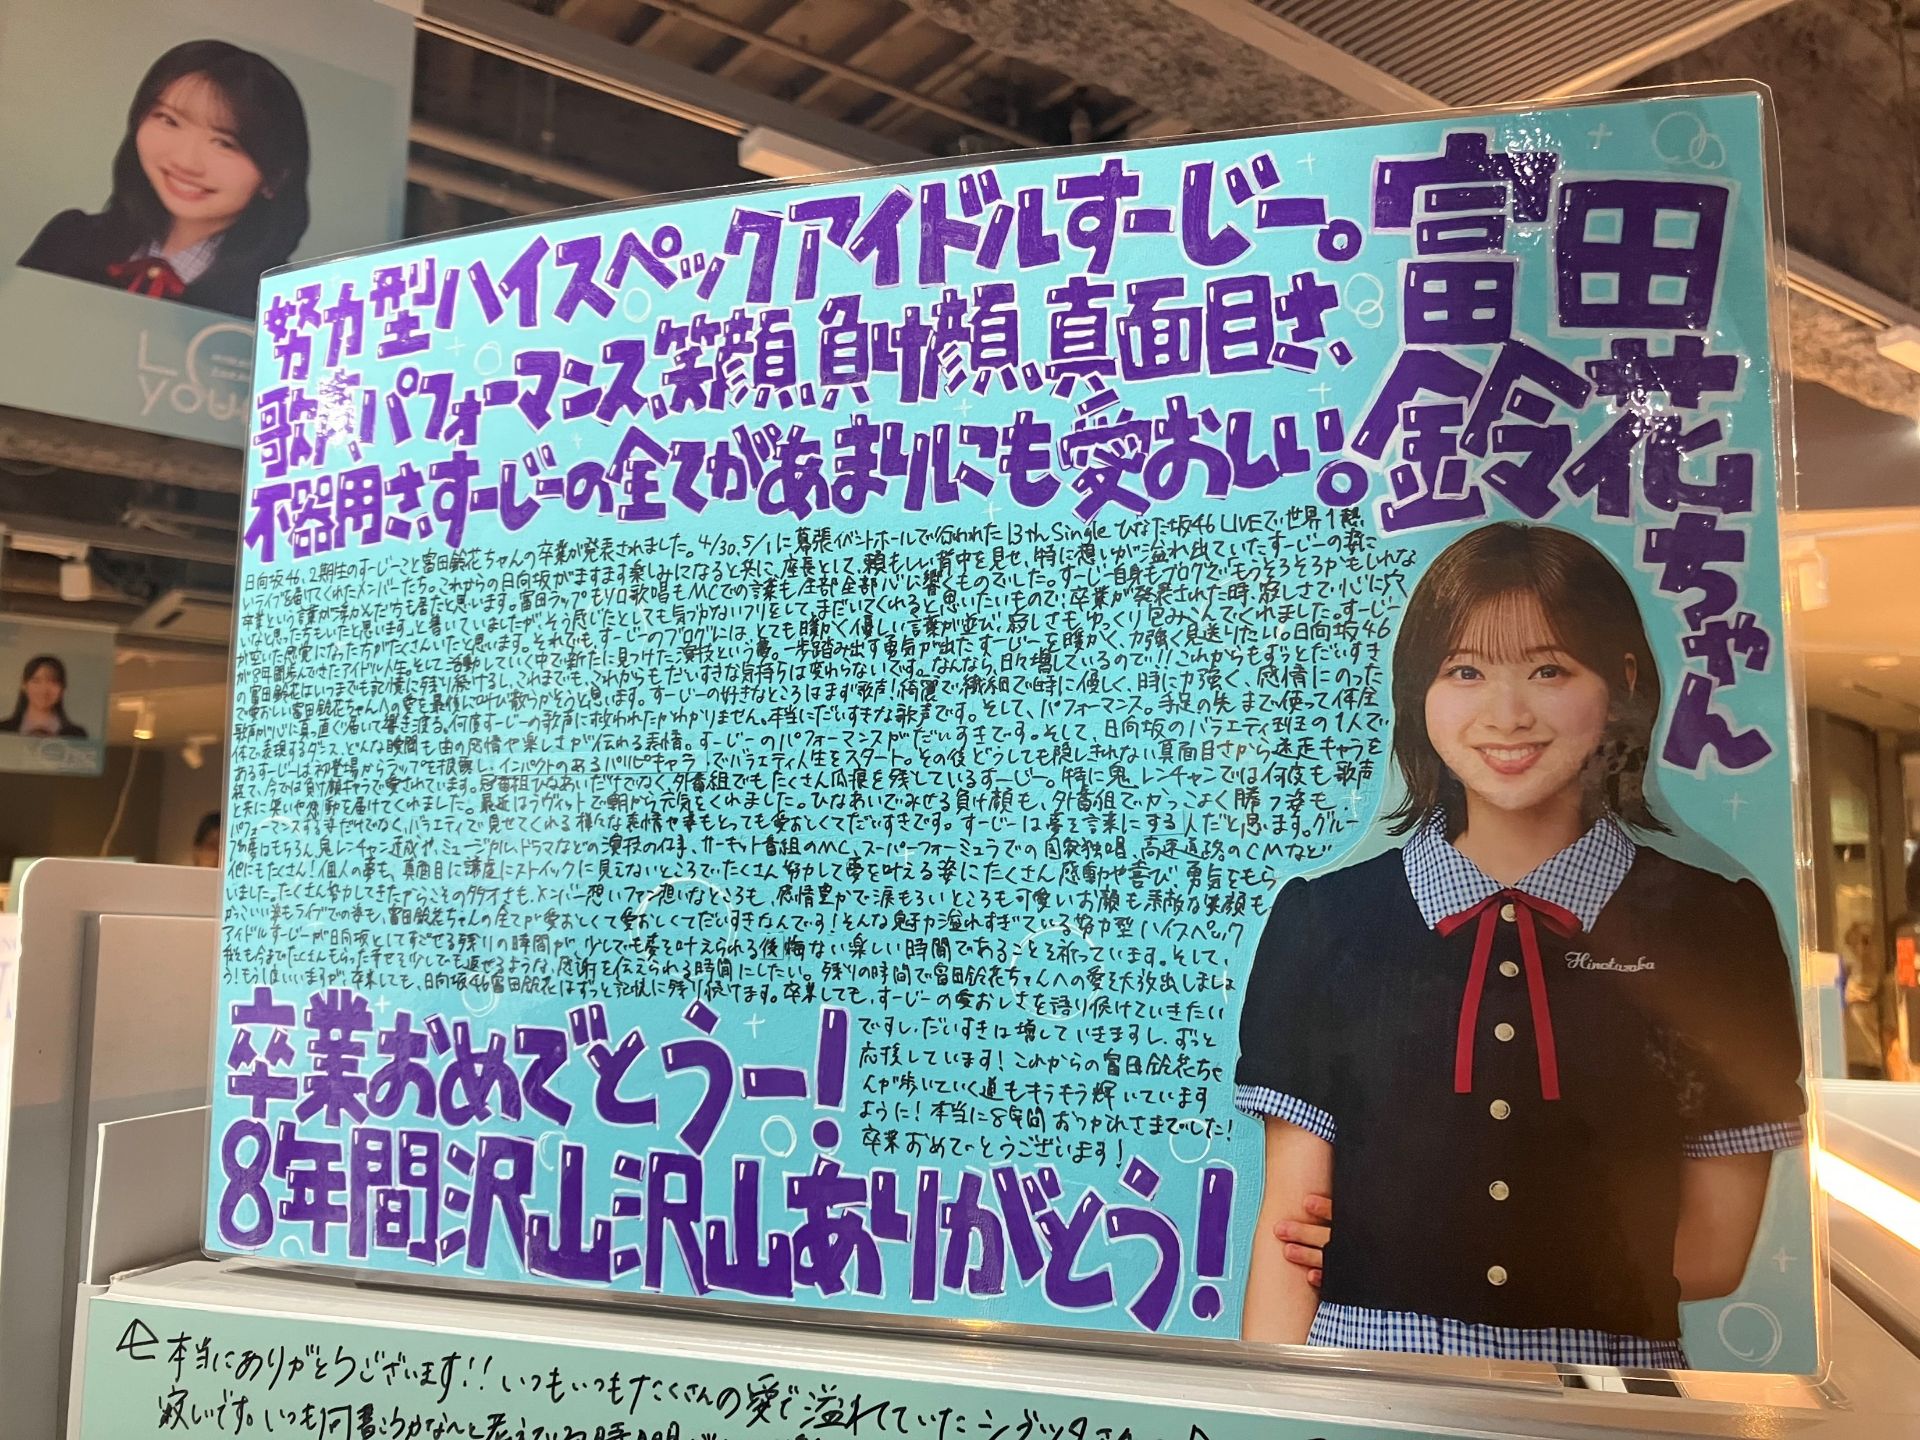 努力型ハイスペックアイドルすーじー。
歌声、パフォーマンス、笑顔、負け顔、真面目さ、
不器用さ、すーじーの全てがあまりにも愛おしい。
富田
鈴花ちゃん
日向坂46、2期生のすーじーこと富田鈴花ちゃんの卒業が発表されました。4/30、5/1に幕張イベントホールで行われた13th Single ひなた坂46 LIVEで世界1熱
いライブを届けてくれたメンバーたち。これからの日向坂がますます楽しみになると共に、座長として、頼もしい背中を見せ、特に想いが溢れ出ていたすーじーの姿に
卒業という言葉が浮かんだ方も居たと思います。富田ラップもソロ歌唱もMCでの言葉も全部全部心に響くものでした。すーじー自身もブログで「もうそろそろかもしれな
いなと思った方もいたと思います」と書いていましたがそう感じたとしても気づかないフリをして、まだいてくれると思いたいもので、卒業が発表された時、寂しさで心に穴
が空いた感覚になった方がたくさんいたと思います。それでも、すーじーのブログには、とても暖かく優しい言葉が並び、寂しさもゆっくり包みこんでくれました。すーじー
が8年間歩んできたアイドル人生。そして活動していく中で新たに見つけた演技という夢。一歩踏み出す勇気が出たすーじーを暖かく、力強く見送りたい。日向坂46
の富田鈴花はいつまでも記憶に残り続けるし、これまでも、これからもだいすきな気持ちは変わらないです。なんなら、日々増しているので!!これからもずっとだいすき
で愛おしい富田鈴花ちゃんへの愛を最後に叫び散らかそうと思います。すーじーの好きなところはまず歌声!綺麗で繊細で時に優しく、時に力強く、感情にのった
歌声が心に真っ直ぐ届いて響き渡る。何度すーじーの歌声に救われたかわかりません。本当にだいすきな歌声です。そして、パフォーマンス。手足の先まで使って体全
体で表現するダンス、どんな瞬間も曲の感情や楽しさが伝わる表情。すーじーのパフォーマンスがだいすきです。そして、日向坂のバラエティ班の1人で
あるすーじーは初登場からラップを披露し、インパクトのある「パリピキャラ」でバラエティ人生をスタート。その後どうしても隠しきれない真面目さから迷走キャラを
経て、今では負け顔キャラで愛されています。冠番組ひなあいだけでなく、外番組でもたくさん爪痕を残しているすーじー。特に鬼レンチャンでは何度も歌声
と共に笑いや感動を届けてくれました。最近はラヴィットで朝から元気をくれました。ひなあいでみせる負け顔も、外番組でかっこよく勝つ姿も
パフォーマンスする姿だけでなく、バラエティで見せてくれる様々な表情や事もとっても愛おしくてだいすきです。すーじーは夢を言葉にする人だと思います。グルー
プの夢はもちろん、鬼レンチャン達成や、ミュージカル、ドラマなどの演技のお仕事、サーキット番組のMC、スーパーフォーミュラでの国歌独唱、高速道路のCMなど
他にもたくさん!個人の夢も、真面目に謙虚にストイックに見えないところでたくさん努力して夢を叶える姿にたくさん感動や喜び、勇気をもら
いました。たくさん努力してきたからこその多才さも、メンバー想いファン想いなところも、感情豊かで涙もろいところも可愛いお顔も素敵な笑顔も、
かっこいい姿もライブでの姿も、富田鈴花ちゃんの全てが愛おしくて愛おしくてだいすきなんです!そんな魅力溢れすぎている努力型ハイスペック
アイドルすーじーが日向坂としてすごせる残りの時間が、少しでも夢を叶えられる後悔ない楽しい時間であることを祈っています。そして、
私も今までたくさんもらった幸せを少しでも返せるような、感謝を伝えられる時間にしたい。残りの時間で富田鈴花ちゃんへの愛を大放出しましょ
う!もうしばいいますが、卒業しても、日向坂46富田鈴花はずっと記憶に残り続けます。卒業しても、すーじーの愛おしさを語り続けていきたい
ですし、だいすきは増していきますし、ずっと
応援しています!これからの富田鈴花ちゃ
んが歩いていく道もキラキラ輝いています
ように!本当に8年間おつかれさまでした!
卒業おめでとうございます!
卒業おめでとうー!
8年間沢山沢山ありがとう!
Hinatazaka
本当にありがとうございます!!いつもいつもたくさんの愛で溢れていた
寂しいです。いつも何書こうかなんと考えている時間が